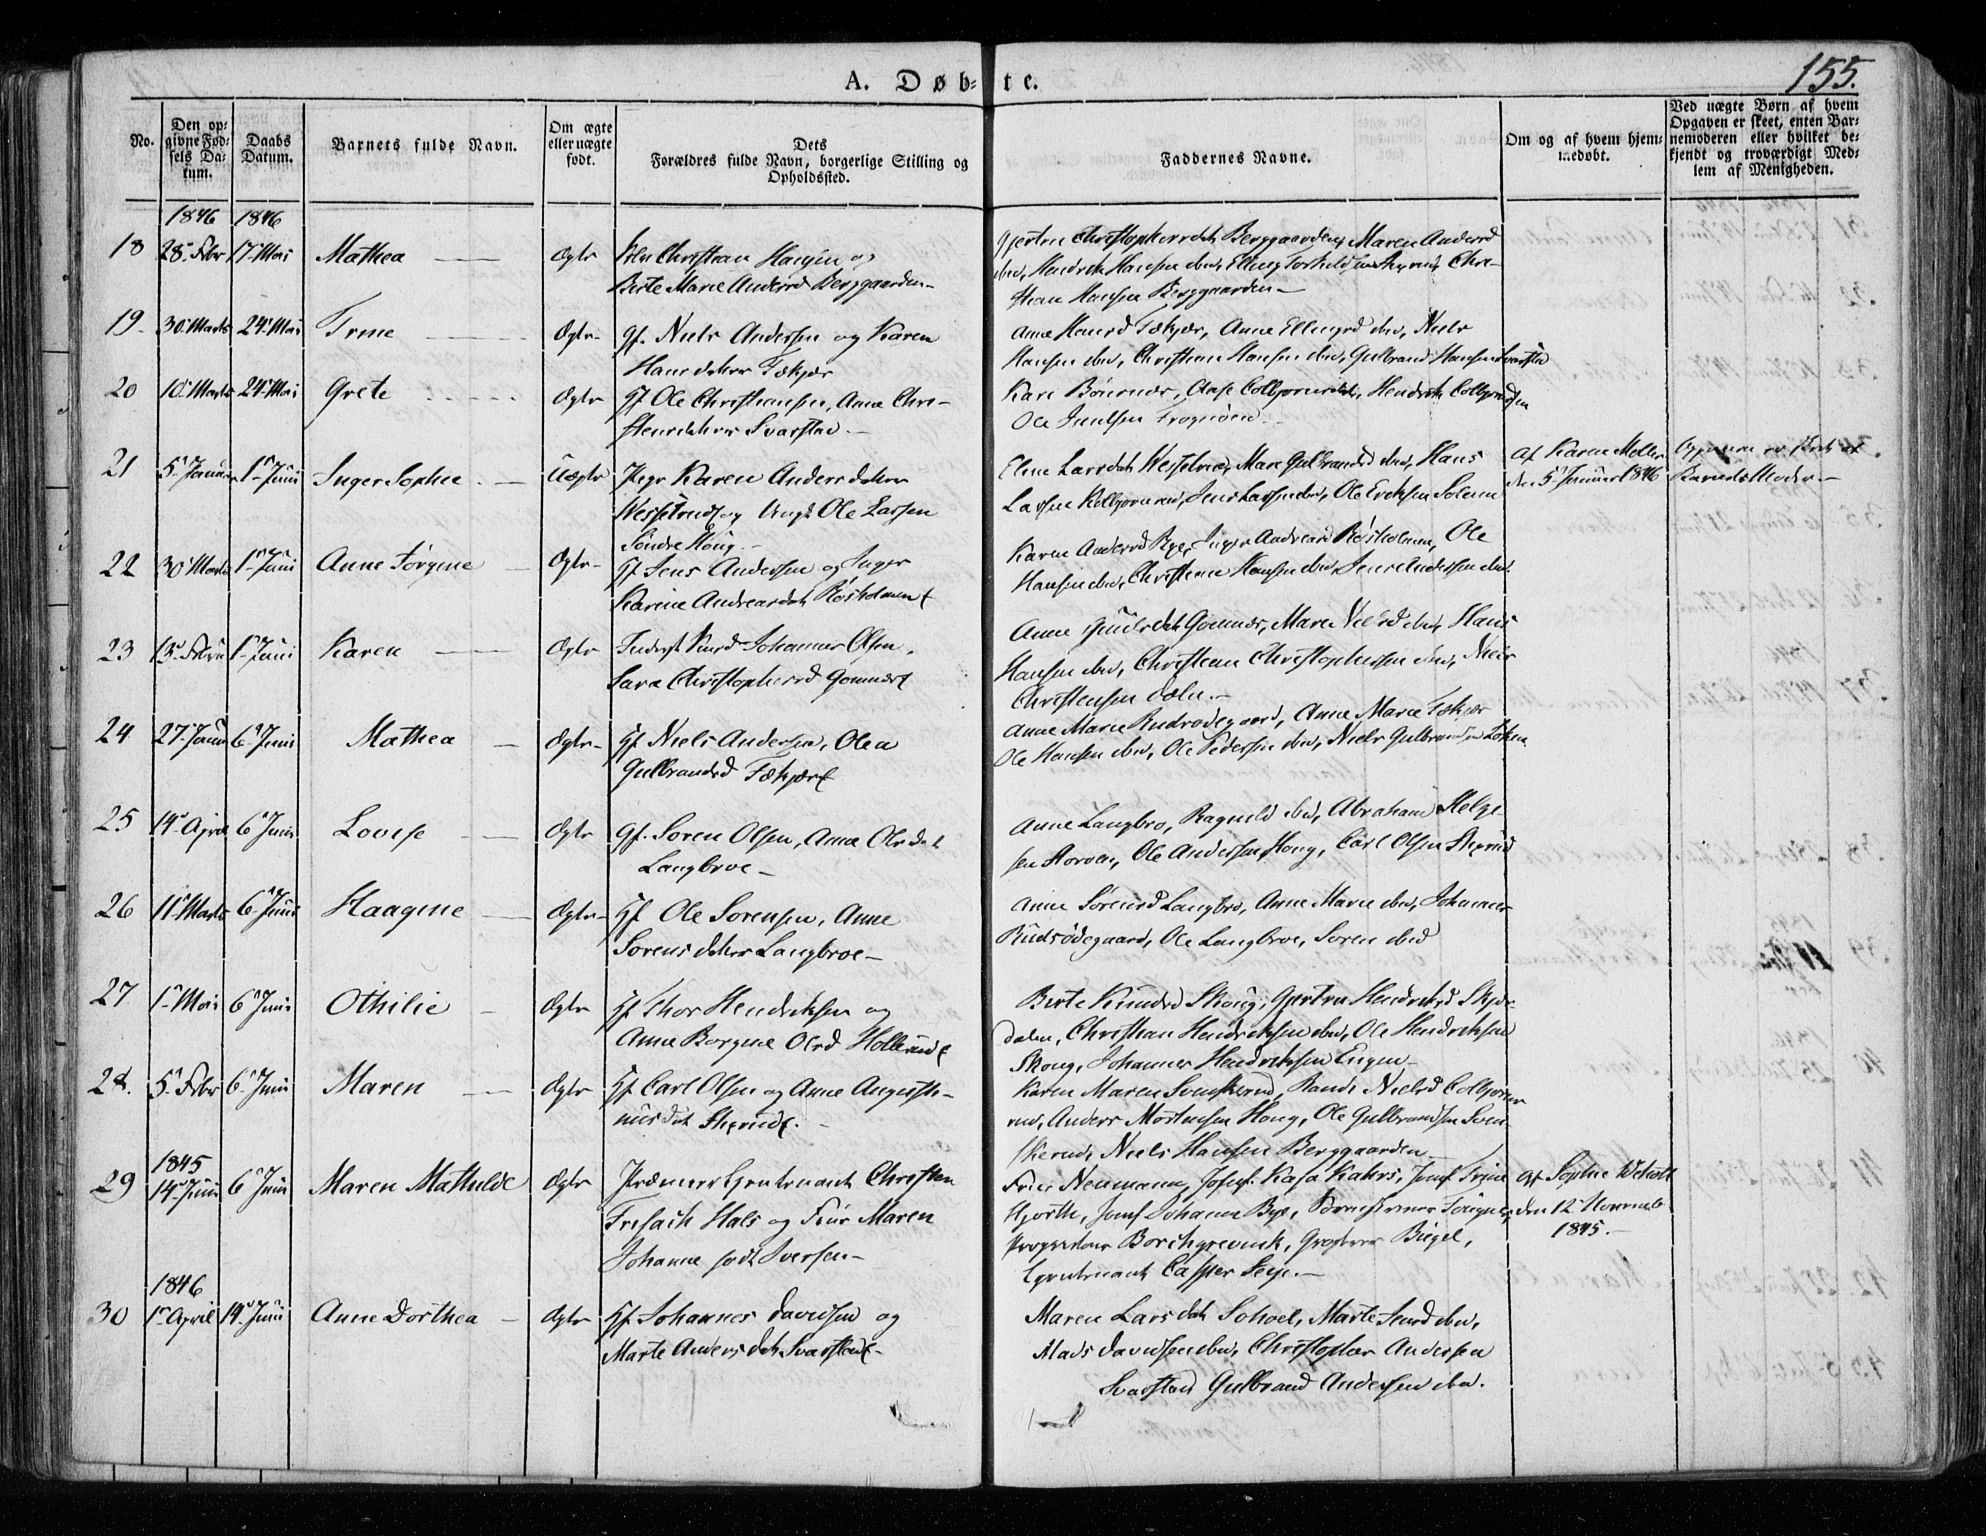 155.
A. Døb-te.
No.
Den op-
givne Fød-
sels Da-
tum.
Daabs
Datum.
Barnets fulde Navn.
Om ægte
eller uægte
født.
Dets
Forældres fulde Navn, borgerlige Stilling og
Opholdssted.
Faddernes Navne.
Om og af hvem hjem-
medøbt.
Ved uægte Børn af hvem
Opgaven er skeet, enten Bar-
nemoderen eller hvilket be-
kjendt og troværdigt Med-
lem af Menigheden.
1846 1846
18 28 Febr 17 Mai Mathea Ægte Christian Hansen og
Birte Marie Andersd Berggaarden
Christophersdt Berggaarden, Maren Andersd
ibd, Hendrik Hansen ibd, Elling Chri-
stian Hansen Berggaarden
19. 30 Marts 24 Mai Trine Ægte Gf. Niels Andersen og Karen
Hansdatter Fækjær
Anne Hansd Fækjær, Anne Ellingsd ibd, Niels
Hansen ibd, Christian Hansen ibd, Gulbrand Hansen Svarstad
20 10 Marts 24 Mai Grete Ægte Gf Ole Christiansen, Anne Chri-
stensdatter Svarstad
Kari Børsnæs, Aase Colbjørnsdt, Hendrik Colbjørnsen
Ole Frognøen
21 5 Januar 1 Juni Inger Sophie Uægte Pige Karen Andersdatter
Wesselrud og Ungk Ole Larsen
Søndre Houg
Eline Larsdt Wesselrud, Mari Gulbrandsd ibd, Hans
Larsen Kolbjørnsrud, Jens Larsen ibd, Ole Eriksen Solem
Af Karen Moller
den 5 Januar 1846
Opgaven er skeet af
Barnets Moder
22 30 Marts 1 Juni Anne Jørgine Ægte Gf Jens Andersen og Inger
Karine Andreasdt Røsholmen
Karen Andersd Rye, Inger Andreasd Røsholmen, Ole
Hansen ibd, Christian Hansen ibd, Jens Andersen ibd.
23 13 Febru 1 Juni Karen Ægte Inderst Johannes Olsen,
Sara Christophersd Gomnæs
Anne Gomnæs, Maren Nielsd ibd, Hans
Hansen ibd, Christian Christophersen ibd, Niels
Christensen Dælie
24 27 Januar 6 Juni Mathea Ægte Gf Niels Andersen, Olea
Gulbrandsd Fækjær
Anne Marie Rudsødegaard, Anne Marie Fækjær
Ole Hansen ibd, Ole Pedersen ibd, Niels Gulbrandsen Løken
25 14 April 6 Juni Lovise Ægte Gf. Søren Olsen, Anne Olsdat
Langbroe
Anne Langbro, Ragnild ibd, Abraham Helge-
sen Ole Andersen Houg, Carl Olsen Skjerud
26 11 Marts 6 Juni Haagine Ægte Gf Ole Sørensen, Anne
Sørensdatter Langbroe
Anne Sørensd Langbro, Anne Marie ibd, Johannes
Rudsødegaard, Ole Langbroe, Søren ibid
27 1 Mai 6 Juni Othilie Ægte Gf Thor Hendriksen og
Anne Borgine Olsd Hollerud
Birte Knudsd Skoug, Gjertru Hendriksd Skjør-
dalen, Christian Hendriksen ibd, Ole Hendriksen
Skoug, Johannes Hendriksen Engen
28. 5 Febr 6 Juni Maren Ægte Gf Carl Olsen og Anne Augusti-
nusdt Skjerud
Karen Maren Svenskerud, Randi Nielsd Colbjørns-
rud, Anders Mortensen Houg, Ole Gulbrandsen Sven-
skerud, Niels Hansen Berggaarden
1845
29 14 Juni 6 Juni Maren Mathilde Ægte Premierlieutenant Christian
Fresach Hals og Frue Maren
Johanne født Iversen
Frue Neumann, Jomf. Kaja Kahrs, Jomf Trine
Hjorth, Jomf Johanne Bye,
Proprietær Borchgrevink, Biegel,
Lieutenant Casper
Af Sophie
den 12 Novemb
1845.
1846
30 1 April 14 Juni Anne Dorthea Ægte Gf. Johannes Davidsen og
Marte Andersdt Svarstad
Maren Larsdt Sohoel, Marte ibd,
Mads Davidsen ibd, Christopher Andersen
Svarstad Gulbrand Andersen ibd.